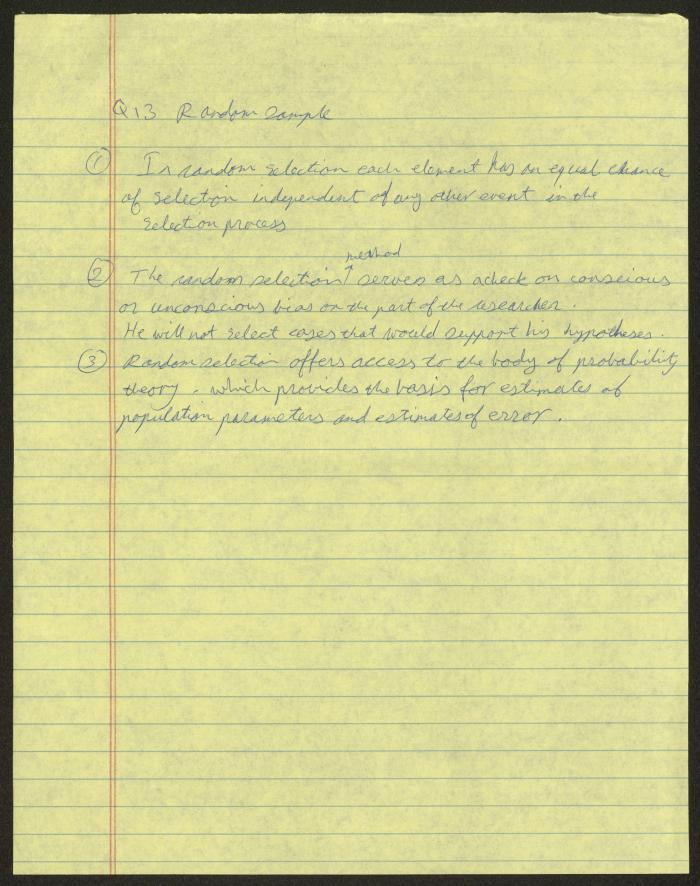 Q13 Random sample
① In random selection each element has an equal chance
of selection independent of any other event in the
selection process
method
② The random selection ↑ serves as a check on conscious
or unconscious bias on the part of the researcher.
He will not select cases that would support his hypotheses.
③ Random selection offers access to the body of probability
theory - which provides the basis for estimates of
population parameters and estimates of error.